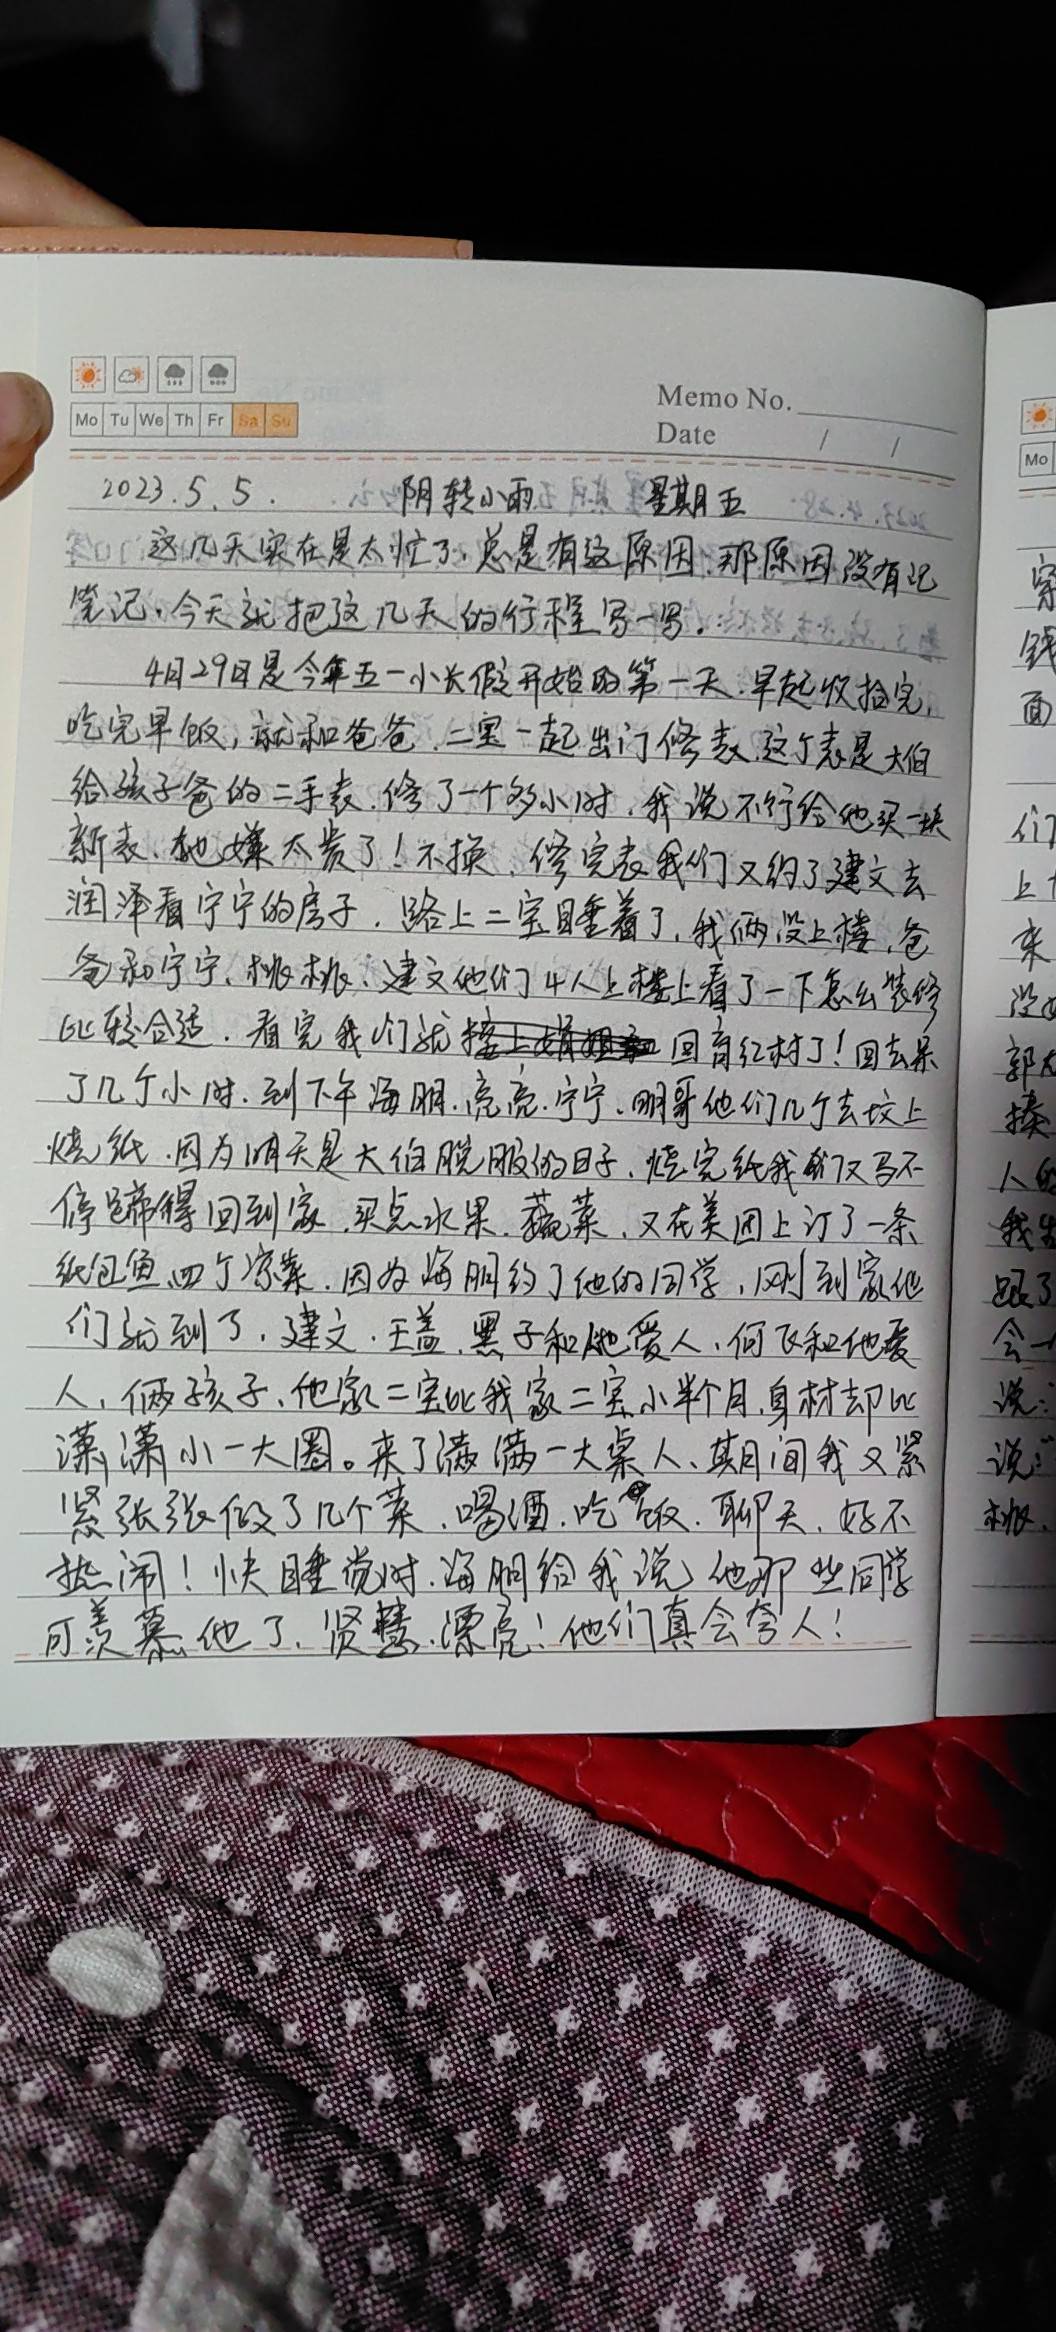 Mo Tu We Th Fr Sa Su
Memo No.
Date / /
2023.5.5. 阴转小雨 星期五
这几天实在是太忙了,总是有这原因、那原因没有记
笔记,今天就把这几天的行程写一写。
4月29日是今年五一小长假开始的第一天.早起收拾完,
吃完早饭,就和爸爸、二宝一起出门修表.这个表是大伯
给孩子爸的二手表.修了一个多小时.我说不行给他买一块
新表、他嫌太贵了!不换.修完表我们又约了建文去
润泽看宁宁的房子.路上二宝睡着了,我俩没上楼,爸
爸和宁宁、桃桃、建文他们4人上楼上看了一下怎么装修
比较合适.看完我们就回育红村了!回去呆
了几个小时.到下午海朋.亮亮.宁宁、明哥他们几个去坟上
烧纸.因为明天是大伯脱服的日子,烧完纸我们又马不
停蹄得回到家.买点水果.蔬菜,又在美团上订了一条
纸包鱼四个凉菜.因为海朋约了他的同学,刚到家他
们就到了,建文.王盖.黑子和他爱人,何飞和他爱
人,俩孩子,他家二宝比我家二宝小半个月.身材却比
潇潇小一大圈。来了满满一大桌人、期间我又紧
紧张张做了几个菜.喝酒.吃饭.聊天.好不
热闹!快睡觉时.海朋给我说他那些同学
可羡慕他了、贤慧.漂亮!他们真会夸人!
Mo
钱
面
们
上
来
没
郭
揍
人的
我
跟了
会一
说:
说:"
桃.